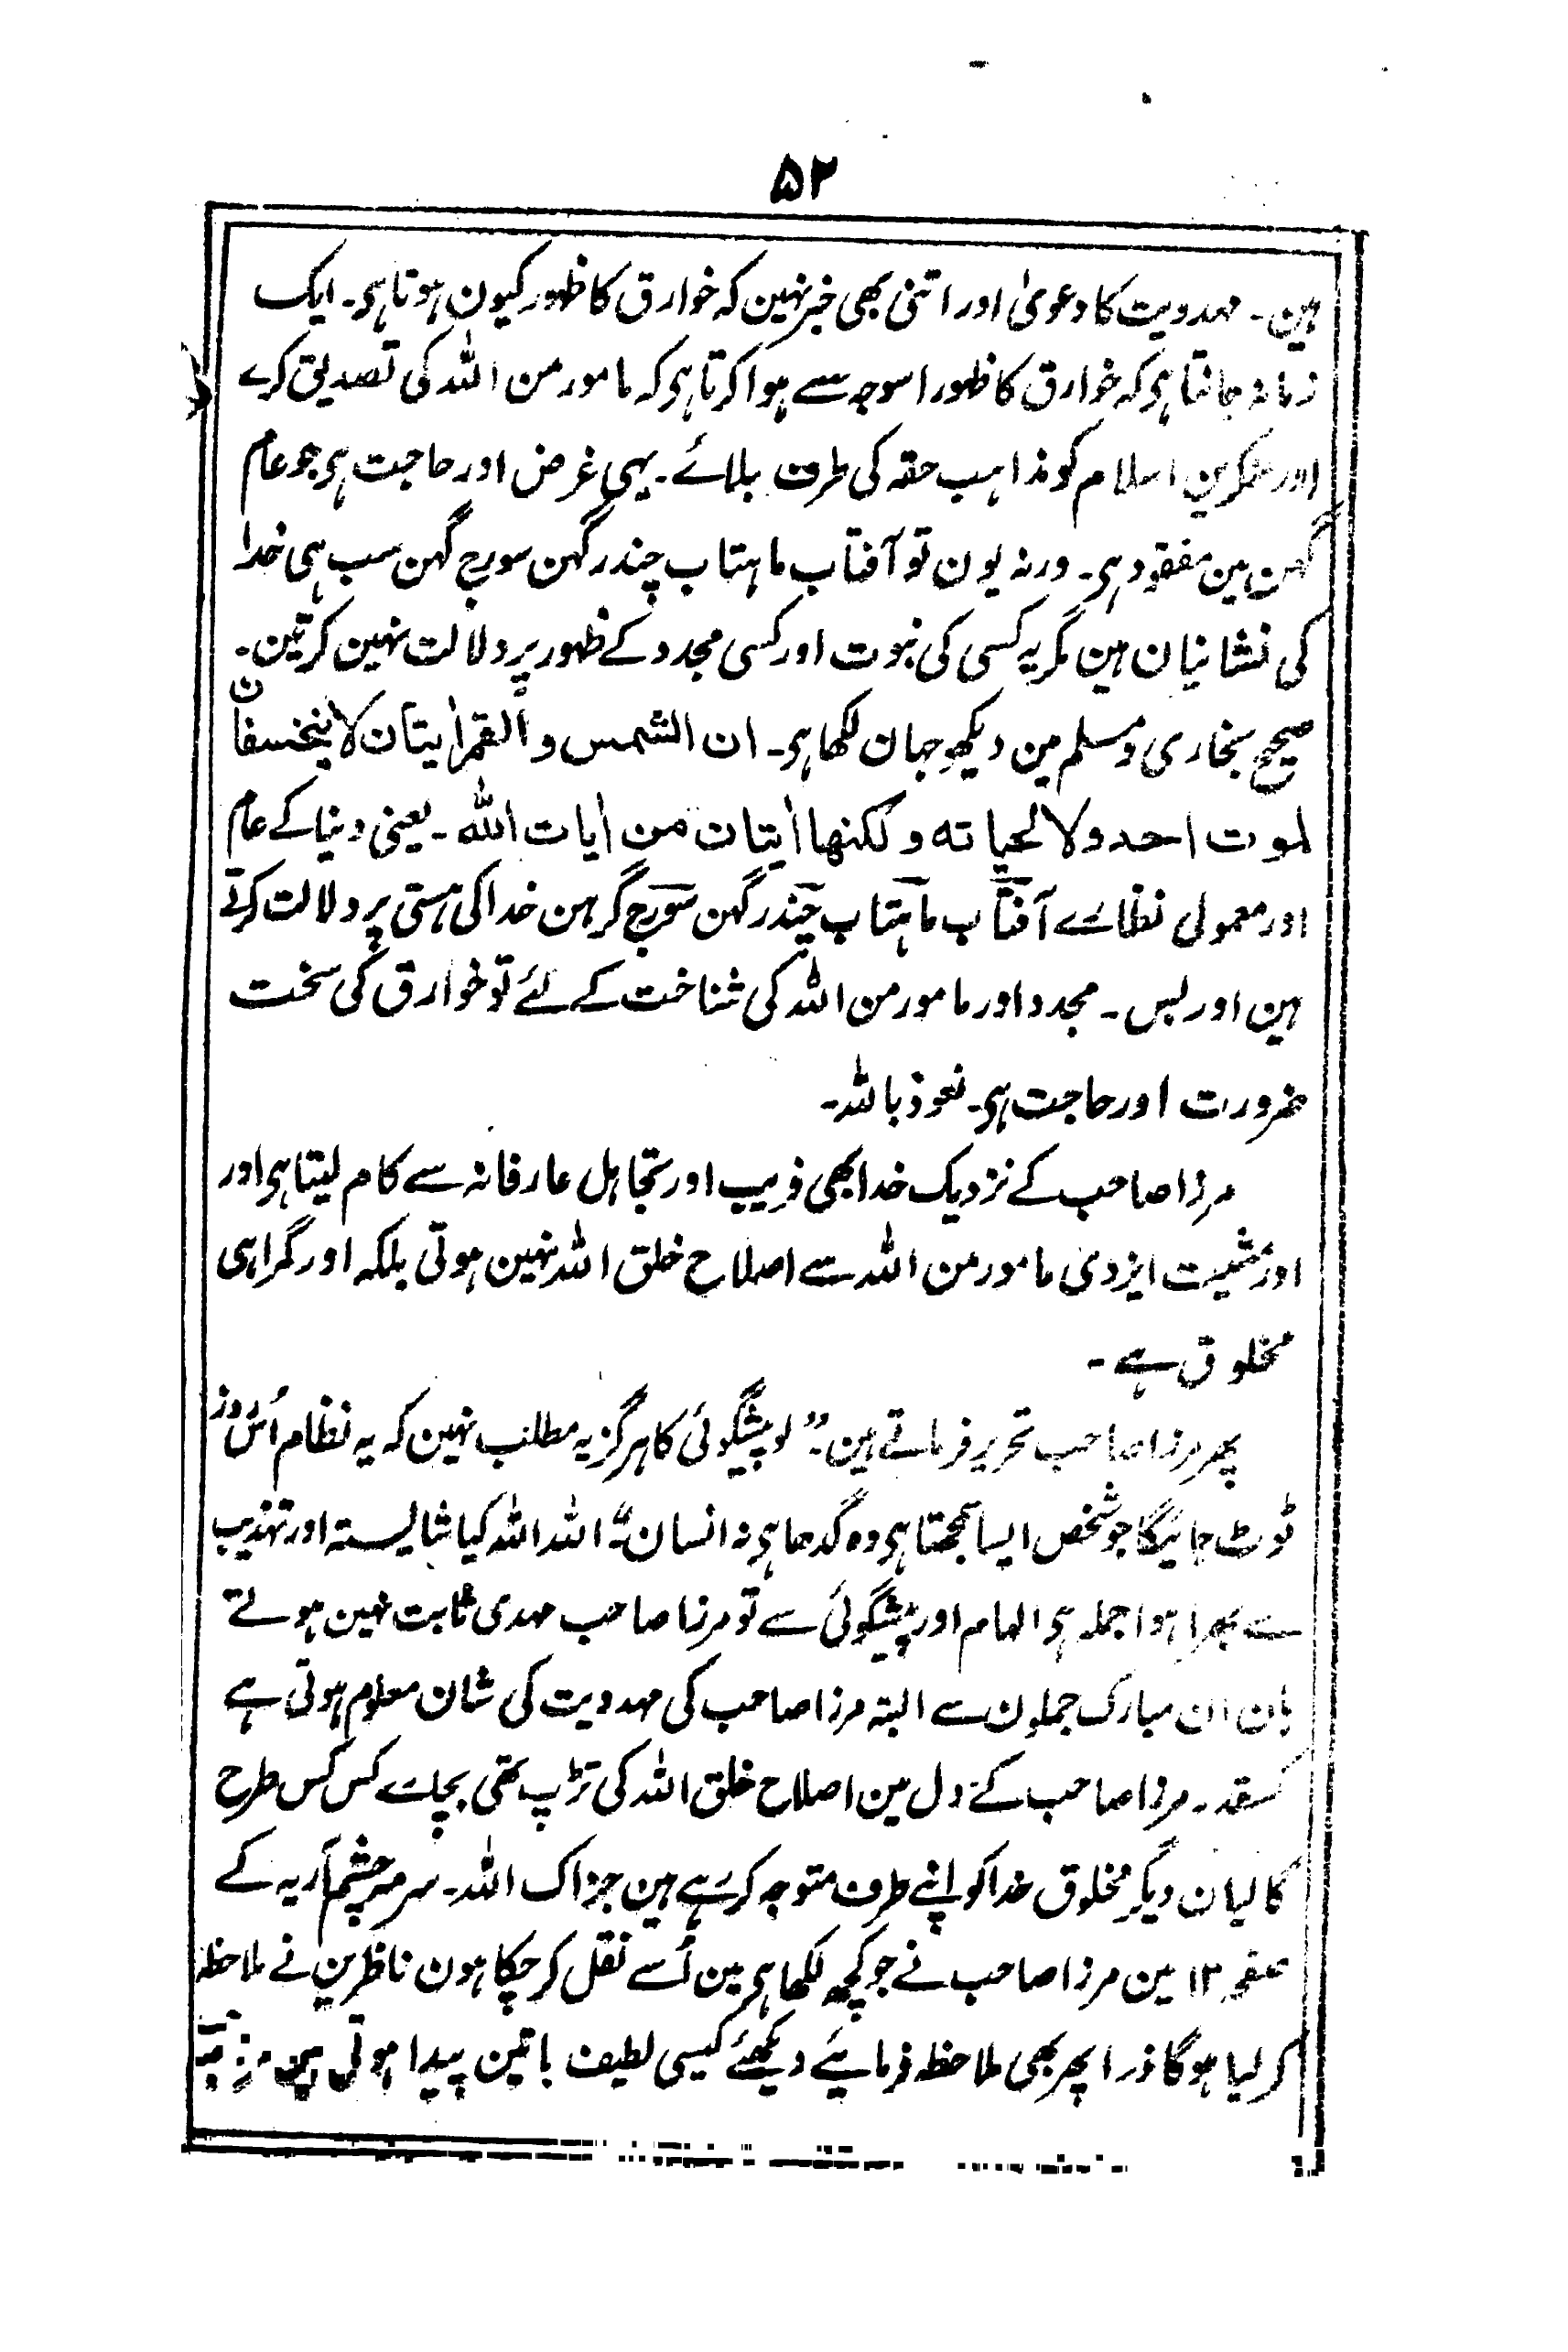 ۵۲
ہین۔ مہدویت کا دعویٰ اور اتنی بھی خبر نہین کہ خوارق کا ظہور کیون ہوتا ہی۔ ایک
زمانہ جانتا ہی کہ خوارق کا ظہور اسوجہ سے ہوا کرتا ہی کہ مامور من اللہ کی تصدیق کرے
اور منکرین اسلام کو مذاہب حقہ کی طرف بلائے۔ یہی غرض اور حاجت ہی جو عام
گہن مین مفقود ہی۔ ورنہ یون تو آفتاب ماہتاب چندر گہن سورج گہن سب ہی خدا
کی نشانیان ہین مگر یہ کسی کی نبوت اور کسی مجدد کے ظہور پر دلالت نہین کرتین۔
صحیح بخاری و مسلم مین دیکھو جہان لکھا ہی۔ ان الشمس والقمر اٰیتان لا ینخسفان
لموت احد ولا لحیاتہ ولکنھا اٰیتان من اٰیات اللہ۔ یعنی دنیا کے عام
اور معمولی نظارے آفتاب ماہتاب چندر گہن سورج گرہن خدا کی ہستی پر دلالت کرتے
ہین اور بس۔ مجدد اور مامور من اللہ کی شناخت کے لئے تو خوارق کی سخت
ضرورت اور حاجت ہی۔ نعوذ باللہ۔
مرزا صاحب کے نزدیک خدا بھی فریب اور تجاہل عارفانہ سے کام لیتا ہی اور
اور مشیت ایزدی مامور من اللہ سے اصلاح خلق اللہ نہین ہوتی بلکہ اور گمراہی
مخلوق ہے۔
پھر مرزا صاحب تحریر فرماتے ہین۔ ”لو پیشگوئی کا ہرگز یہ مطلب نہین کہ یہ نظام اُس روز
ٹوٹ جائیگا جو شخص ایسا سمجھتا ہی وہ گدھا ہی نہ انسان“۔ اللہ اللہ کیا شایستہ اور تہذیب
سے بھرا ہوا جملہ ہی الہام اور پیشگوئی سے تو مرزا صاحب مہدی ثابت نہین ہوتے
ہان ان مبارک جملون سے البتہ مرزا صاحب کی مہدویت کی شان معلوم ہوتی ہے
کسقدر مرزا صاحب کے دل مین اصلاح خلق اللہ کی تڑپ تھی بچارے کس کس طرح
گالیان دیکر مخلوق خدا کو اپنے طرف متوجہ کر رہے ہین جزاک اللہ۔ سرمہ چشم آریہ کے
صفحہ ۱۳ مین مرزا صاحب نے جو کچھ لکھا ہی مین اُسے نقل کر چکا ہون ناظرین نے ملاحظہ
کر لیا ہوگا ذرا پھر بھی ملاحظہ فرمایئے دیکھئے کیسی لطیف باتین پیدا ہوتی ہین